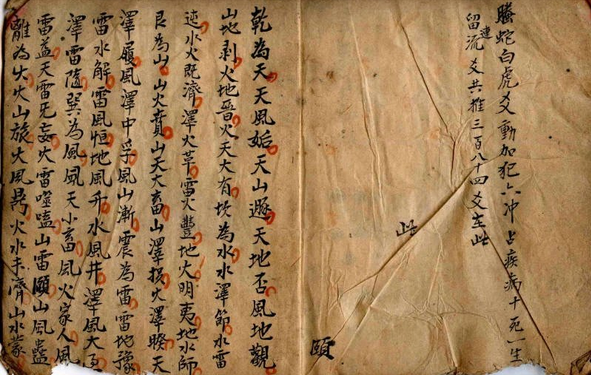 螣蛇白虎爻動加犯六冲占疾病十死一生
留連流爻共推三百八十四爻在此
此
頤
乾為天天風姤天山遯天地否風地觀
山地剥火地晉火天大有坎為水水澤節水雷
迍水火既濟澤火革雷火豐地火明夷地水師
艮為山山火賁山天大畜山澤損火澤睽天
澤履風澤中孚風山漸震為雷雷地豫
雷水解雷風恒地風升水風井澤風大
澤雷隨巽為風風天小畜風火家人風
雷益天雷无妄火雷噬嗑山雷頤山風蠱
離為火火山旅火風鼎火水未濟山水蒙